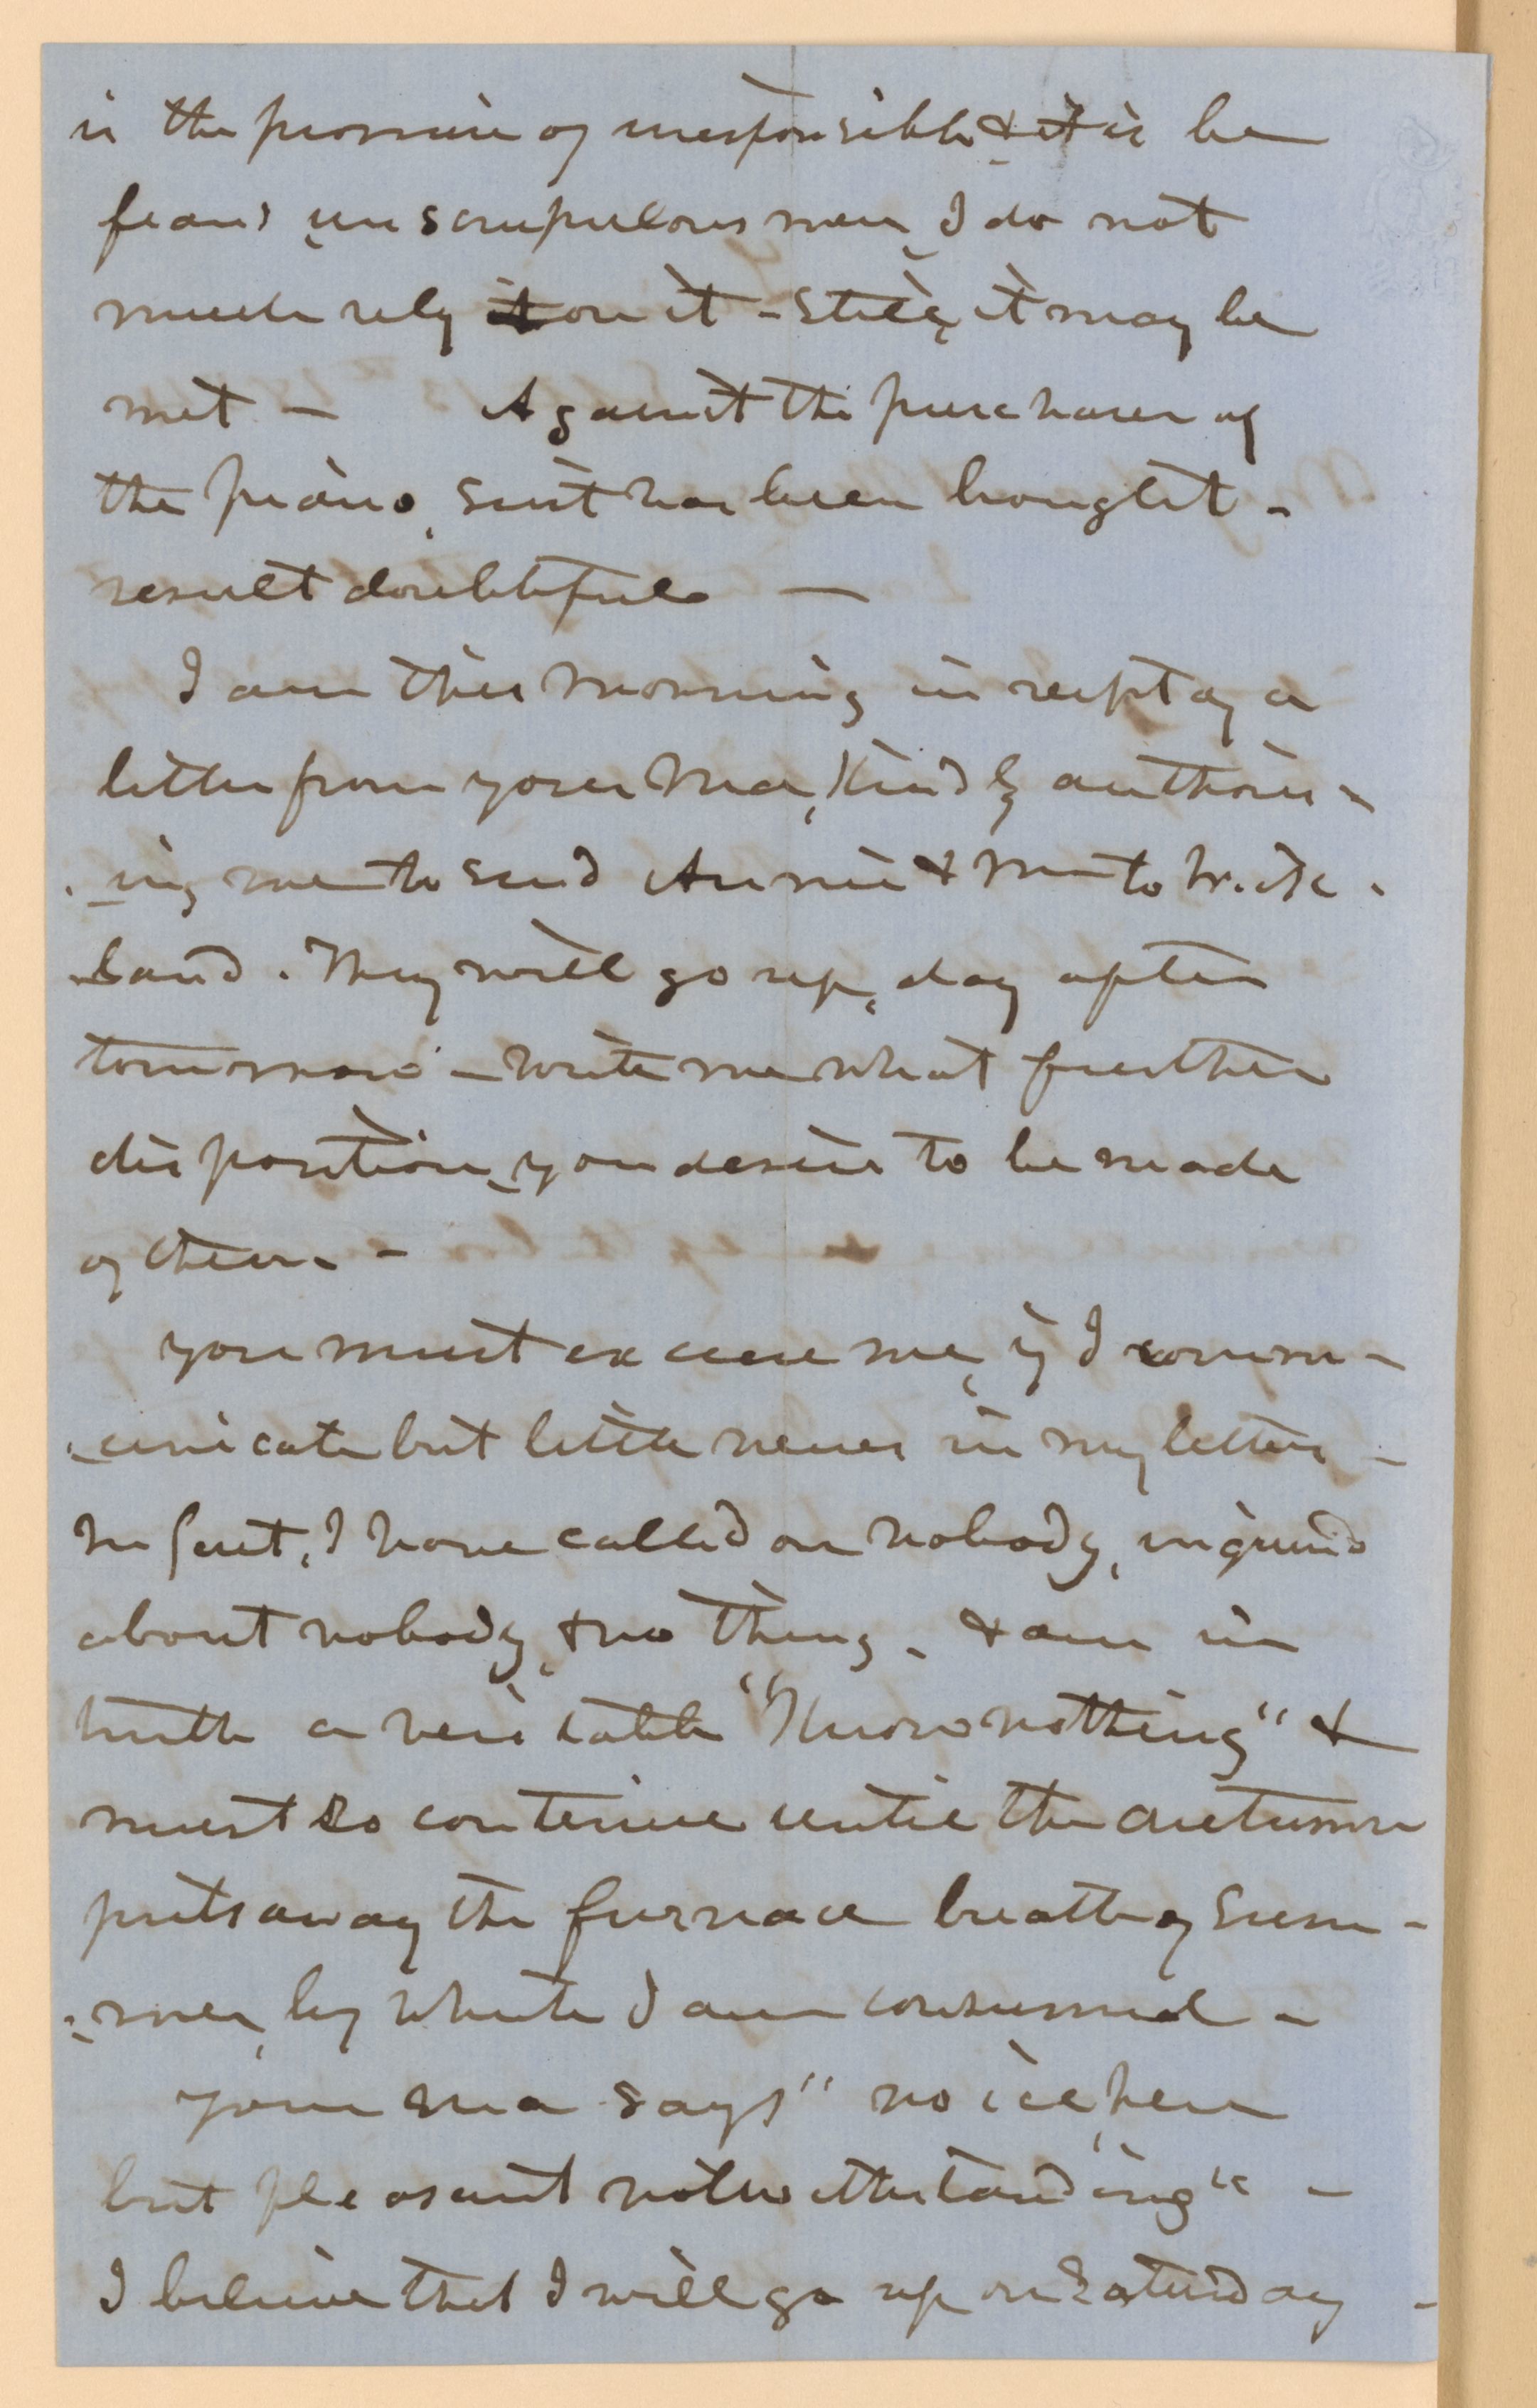 is the promise of irresponsible & it is be
feared, unscrupulous men, I do not
much rely on it - still, it may be
met - Against the purchaser of
the piano, suit has been brought -
result doubtful -
I am this morning in recpt of a
letter from your Ma, kindly authoris -
- ing me to send Annie & to
land. They will go up, day after
tomorrow - write me what further
disposition, you desire to be made
of them. -
you must excuse me, if I comm -
- unicate but little news in my letters -
In fact, I have called on nobody, inquired
about nobody, & no thing. & am in
truth a veritable "Know nothing" &
must so continue until the autumn
puts away the furnace breath of Sum -
- mer, by which I am consumed -
your ma says "no ice, here
but pleasant notwithstanding" -
I believe that I will go up on Saturday -